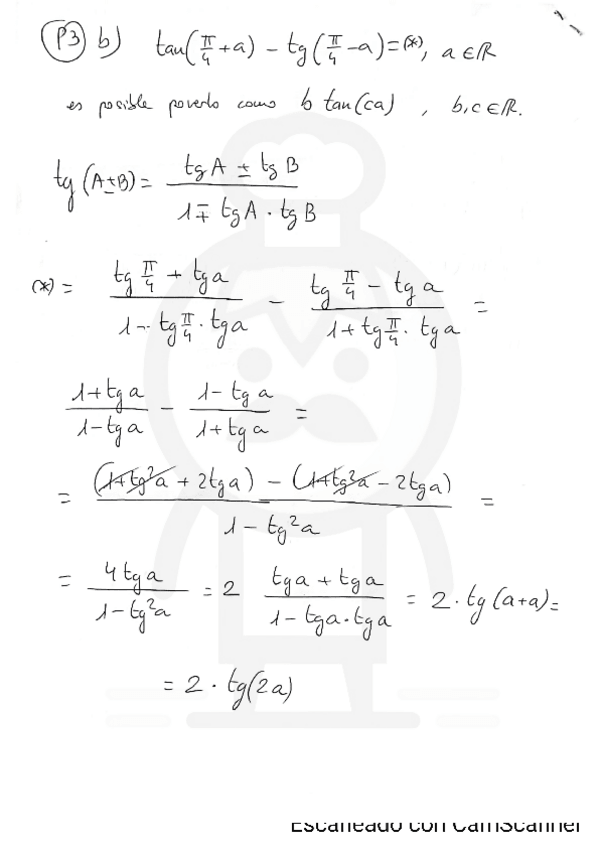 P3 b) tan(π/4+a) - tg(π/4-a)=(*), a∈ℝ
es posible poverlo como b tan(ca), b,c∈ℝ.
tg(A±B)= (tg A ± tg B)/(1∓ tg A · tg B)
(*)= (tg π/4 + tg a)/(1- tg π/4 · tg a) - (tg π/4 - tg a)/(1+ tg π/4 · tg a) =
(1+tg a)/(1-tg a) - (1-tg a)/(1+tg a) =
= ((1+tg²a + 2tg a) - (1+tg²a - 2tg a))/(1-tg²a) =
= (4tg a)/(1-tg²a) = 2 (tg a + tg a)/(1-tg a·tg a) = 2·tg(a+a)=
= 2·tg(2a)
Escaneado con CamScanner